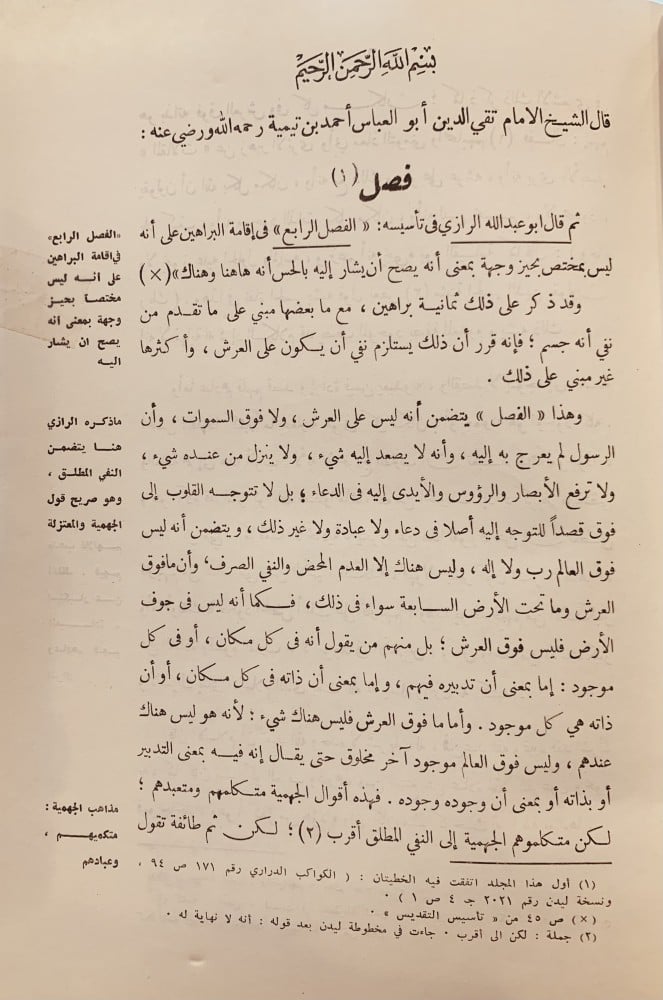 بسم الله الرحمن الرحيم
قال الشيخ الامام تقي الدين أبو العباس أحمد بن تيمية رحمه الله ورضي عنه :
فصل (١)
ثم قال ابو عبد الله الرازي فى تأسيسه: « الفصل الرابع » فى إقامة البراهين على أنه
ليس بمختص بحيز وجهة بمعنى أنه يصح أن يشار إليه بالحس أنه هاهنا وهناك» (×)
وقد ذكر على ذلك ثمانية براهين ، مع ما بعضها مبني على ما تقدم من
نفي أنه جسم ؛ فإنه قرر أن ذلك يستلزم نفي أن يكون على العرش ، وأكثرها
غير مبني على ذلك .
وهذا « الفصل » يتضمن أنه ليس على العرش ، ولا فوق السموات ، وأن
الرسول لم يعرج به إليه ، وأنه لا يصعد إليه شيء ، ولا ينزل من عنده شيء ،
ولا ترفع الأبصار والرؤوس والأيدى إليه فى الدعاء ؛ بل لا تتوجه القلوب إلى
فوق قصداً للتوجه إليه أصلا فى دعاء ولا عبادة ولا غير ذلك ، ويتضمن أنه ليس
فوق العالم رب ولا إله ، وليس هناك إلا العدم المحض والنفي الصرف، وأن مافوق
العرش وما تحت الأرض السابعة سواء فى ذلك ، فكما أنه ليس فى جوف
الأرض فليس فوق العرش ؛ بل منهم من يقول أنه فى كل مكان ، أو فى كل
موجود : إما بمعنى أن تدبيره فيهم ، وإما بمعنى أن ذاته فى كل مكان ، أو أن
ذاته هي كل موجود . وأما ما فوق العرش فليس هناك شيء ؛ لأنه هو ليس هناك
عندهم ، وليس فوق العالم موجود آخر مخلوق حتى يقال إنه فيه بمعنى التدبير
أو بذاته أو بمعنى أن وجوده وجوده . فهذه أقوال الجهمية متكلمهم ومتعبدهم ؛
لكن متكلموهم الجهمية إلى النفي المطلق أقرب (٢) ؛ لكن ثم طائفة تقول
«الفصل الرابع»
في اقامة البراهين
على انه ليس
مختصا بحيز
وجهة بمعنى أنه
يصح ان يشار
اليه
ماذكره الرازي
هنا يتضمن
النفي المطلق ،
وهو صريح قول
الجهمية والمعتزلة
مذاهب الجهمية :
متكلميهم ،
وعبادهم
(١) أول هذا المجلد اتفقت فيه الخطيتان : ( الكواكب الدراري رقم ١٧١ ص ٩٤ ،
ونسخة ليدن رقم ٢٠٢١ جـ ٤ ص ١ ) .
(×) ص ٤٥ من « تأسيس التقديس » .
(٢) جملة : لكن الى أقرب . جاءت في مخطوطة ليدن بعد قوله : أنه لا نهاية له .